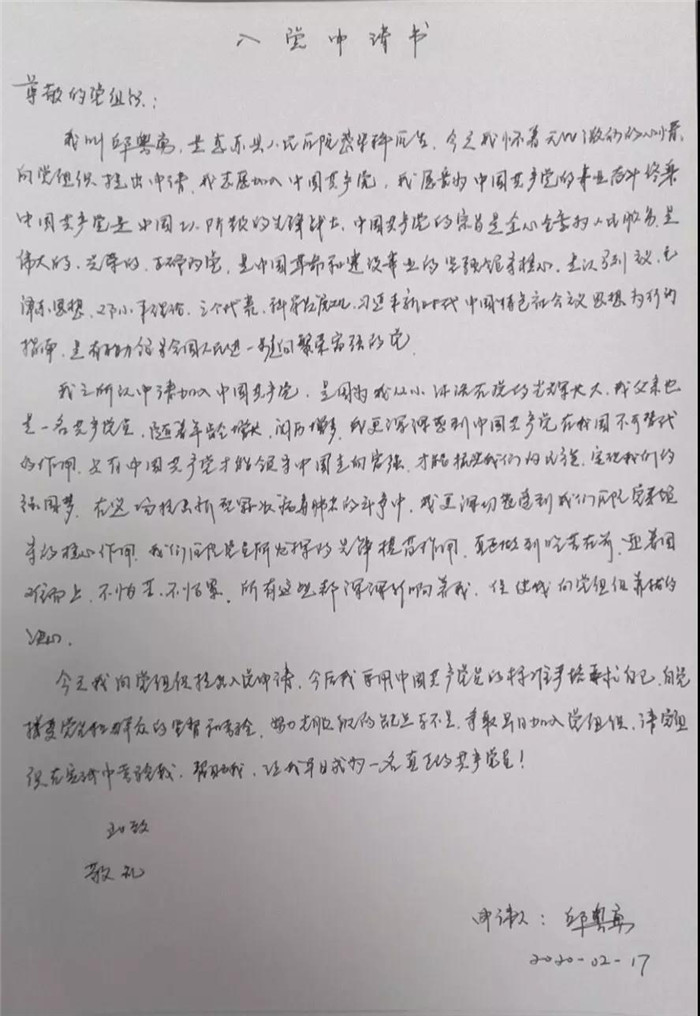 入党申请书
尊敬的党组织：
我叫邱粤南，是惠东县人民医院急诊科医生，今天我怀着无比激动的心情
向党组织提出申请，我志愿加入中国共产党，我愿意为中国共产党的事业奋斗终身
中国共产党是中国工人阶级的先锋战士，中国共产党的宗旨是全心全意为人民服务，是
伟大的、光荣的、正确的党，是中国革命和建设事业的坚强领导核心，马列主义、毛
泽东思想、邓小平理论、三个代表、科学发展观、习近平新时代中国特色社会主义思想为行动
指南，是有能力领导全国人民进一步走向繁荣富强的党。
我之所以申请加入中国共产党，是因为我从小沐浴在党的光辉大，我父亲也
是一名共产党员，随着年龄增大，阅历增多，我更深深感到中国共产党在我国不可替代
的作用，只有中国共产党才能领导中国走向富强，才能振兴我们的民族，实现我们的
强国梦。在这场抗击新型冠状病毒肺炎的斗争中，我更深切感受到我们医院党委领
导的核心作用，我们医院党员所发挥的先锋模范作用，真正做到吃苦在前，迎着困
难而上，不怕苦，不怕累，所有这些都深深影响着我，促使我向党组织靠拢的
决心。
今天我向党组织提出入党申请，今后我要用中国共产党员的标准严格要求自己，自觉
接受党员和群众的监督和考验，努力克服自己的缺点与不足，争取早日加入党组织，请党组
织在实践中考验我，帮助我，让我早日成为一名真正的共产党员！
此致
敬礼
申请人：邱粤南
2020-02-17